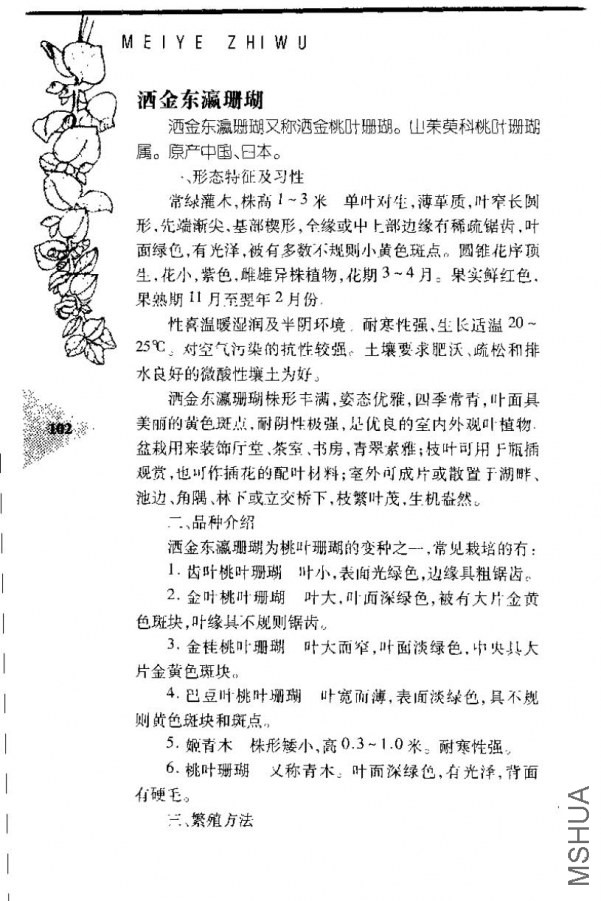 MEIYE ZHIWU
洒金东瀛珊瑚
洒金东瀛珊瑚又称洒金桃叶珊瑚。山茱萸科桃叶珊瑚
属。原产中国、日本。
一、形态特征及习性
常绿灌木,株高1~3米 单叶对生,薄革质,叶窄长圆
形,先端渐尖、基部楔形,全缘或中上部边缘有稀疏锯齿,叶
面绿色,有光泽,被有多数不规则小黄色斑点。圆锥花序顶
生,花小,紫色,雌雄异株植物,花期3~4月。果实鲜红色.
果熟期11月至翌年2月份.
性喜温暖湿润及半阴环境. 耐寒性强、生长适温20~
25℃。对空气污染的抗性较强。土壤要求肥沃、疏松和排
水良好的微酸性壤土为好。
洒金东瀛珊瑚株形丰满,姿态优雅,四季常青,叶面具
美丽的黄色斑点,耐阴性极强,是优良的室内外观叶植物.
盆栽用来装饰厅堂、茶室、书房,青翠素雅;枝叶可用于瓶插
观赏,也可作插花的配叶材料;室外可成片或散置于湖畔、
池边、角隅、林下或立交桥下,枝繁叶茂,生机盎然。
102
二、品种介绍
洒金东瀛珊瑚为桃叶珊瑚的变种之一,常见栽培的有:
1. 齿叶桃叶珊瑚 叶小,表面光绿色,边缘具粗锯齿。
2. 金叶桃叶珊瑚 叶大,叶面深绿色,被有大片金黄
色斑块,叶缘具不规则锯齿。
3. 金桂桃叶珊瑚 叶大而窄,叶面淡绿色,中央具大
片金黄色斑块。
4. 巴豆叶桃叶珊瑚 叶宽而薄,表面淡绿色,具不规
则黄色斑块和斑点。
5. 姬青木 株形矮小,高0.3~1.0米。耐寒性强。
6. 桃叶珊瑚 又称青木。叶面深绿色,有光泽,背面
有硬毛。
三、繁殖方法
MSHUA